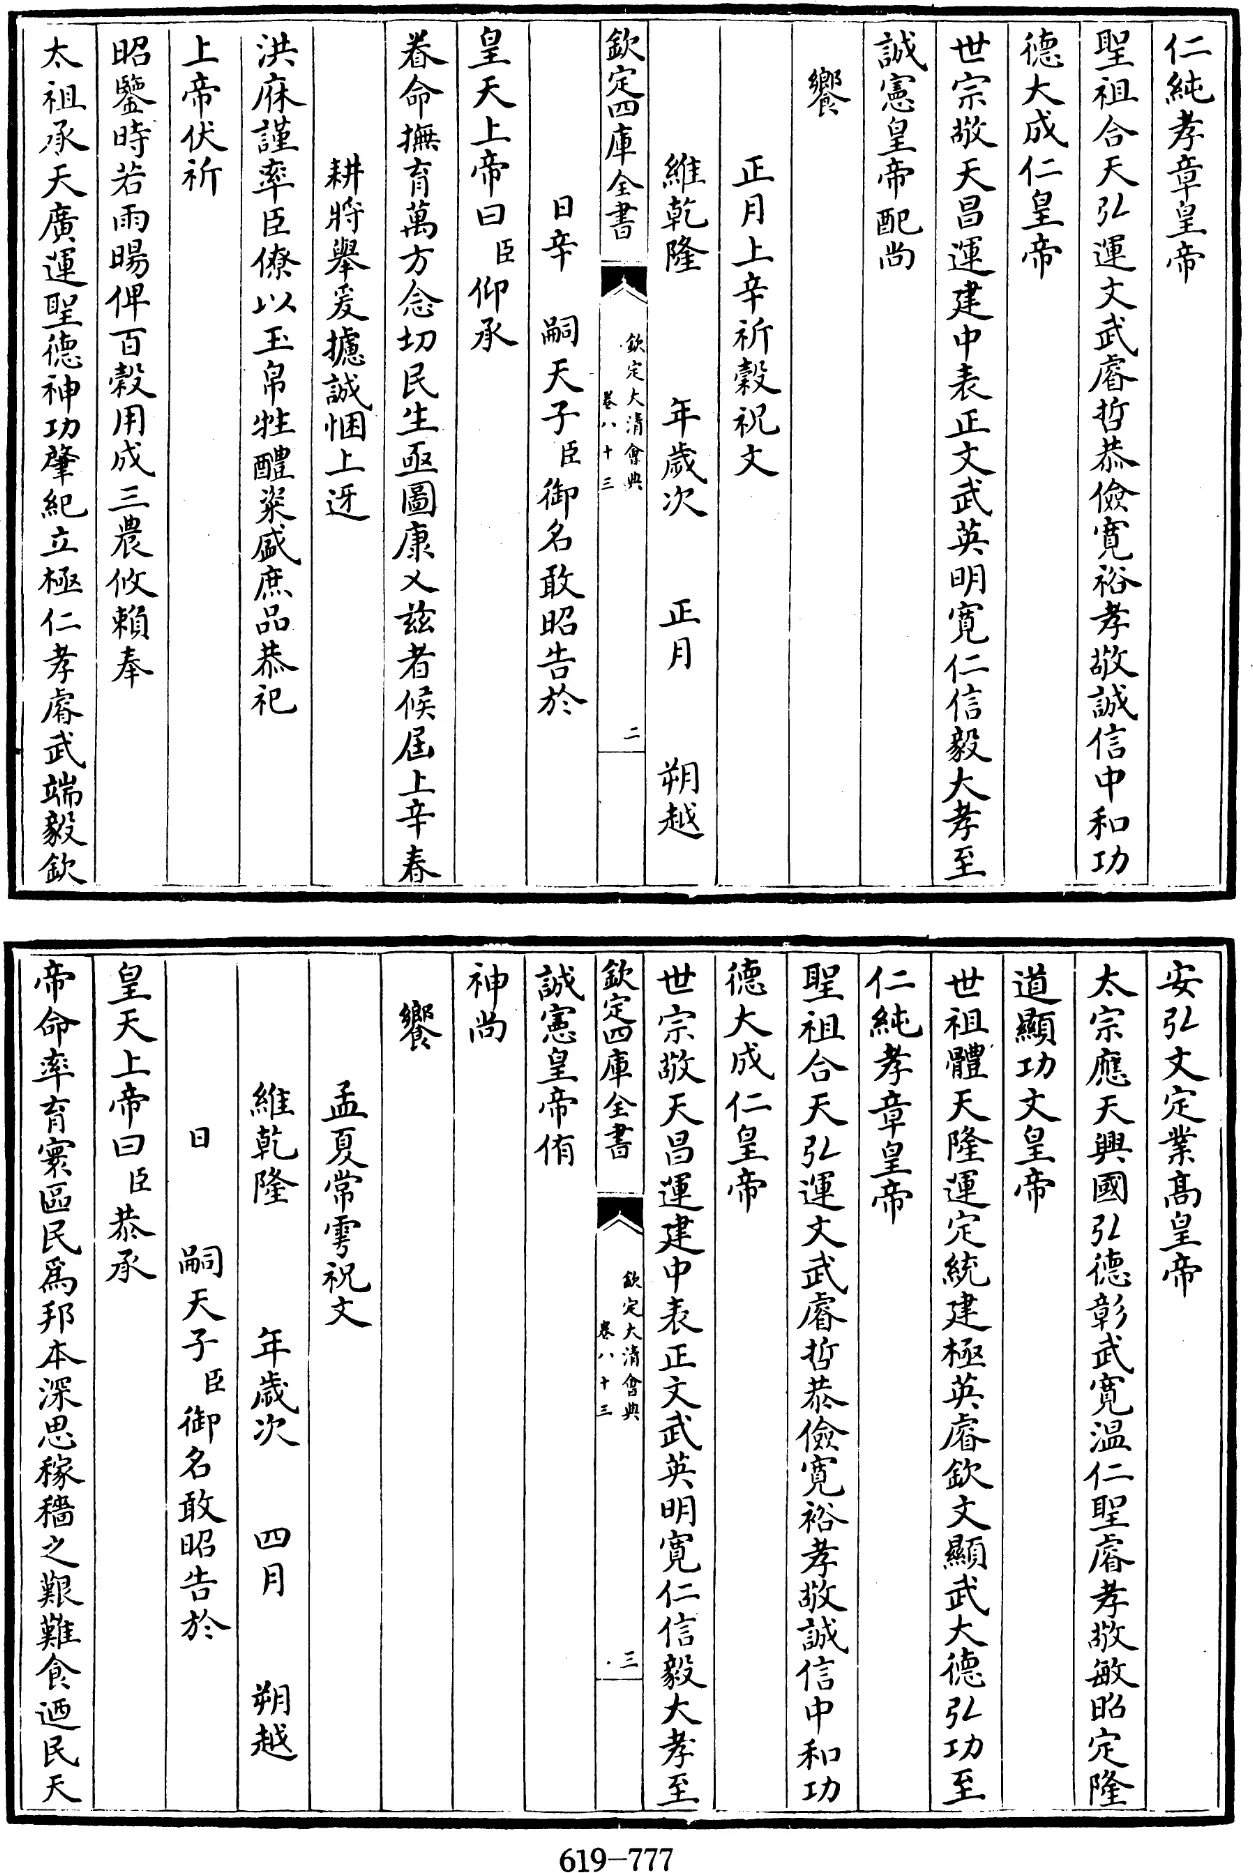 仁純孝章皇帝
聖祖合天弘運文武睿哲恭儉寛裕孝敬誠信中和功
德大成仁皇帝
世宗敬天昌運建中表正文武英明寛仁信毅大孝至
誠憲皇帝配尚
饗
正月上辛祈穀祝文
維乾隆 年歲次 正月 朔越
欽定四庫全書 欽定大清會典 卷八十三 二
日辛 嗣天子臣御名敢昭告於
皇天上帝曰臣仰承
眷命撫育萬方念切民生亟圖康乂兹者候屆上辛春
耕將舉爰攄誠悃上迓
洪庥謹率臣僚以玉帛牲醴粢盛庶品恭祀
上帝伏祈
昭鑒時若雨暘俾百榖用成三農攸賴奉
太祖承天廣運聖德神功肇紀立極仁孝睿武端毅欽
安弘文定業髙皇帝
太宗應天興國弘德彰武寛温仁聖睿孝敬敏昭定隆
道顯功文皇帝
世祖體天隆運定統建極英睿欽文顯武大德弘功至
仁純孝章皇帝
聖祖合天弘運文武睿哲恭儉寛裕孝敬誠信中和功
德大成仁皇帝
世宗敬天昌運建中表正文武英明寛仁信毅大孝至
欽定四庫全書 欽定大清會典 卷八十三 三
誠憲皇帝侑
神尚
饗
孟夏常雩祝文
維乾隆 年歲次 四月 朔越
日 嗣天子臣御名敢昭告於
皇天上帝曰臣恭承
帝命率育寰區民為邦本深思稼穡之艱難食迺民天
619-777